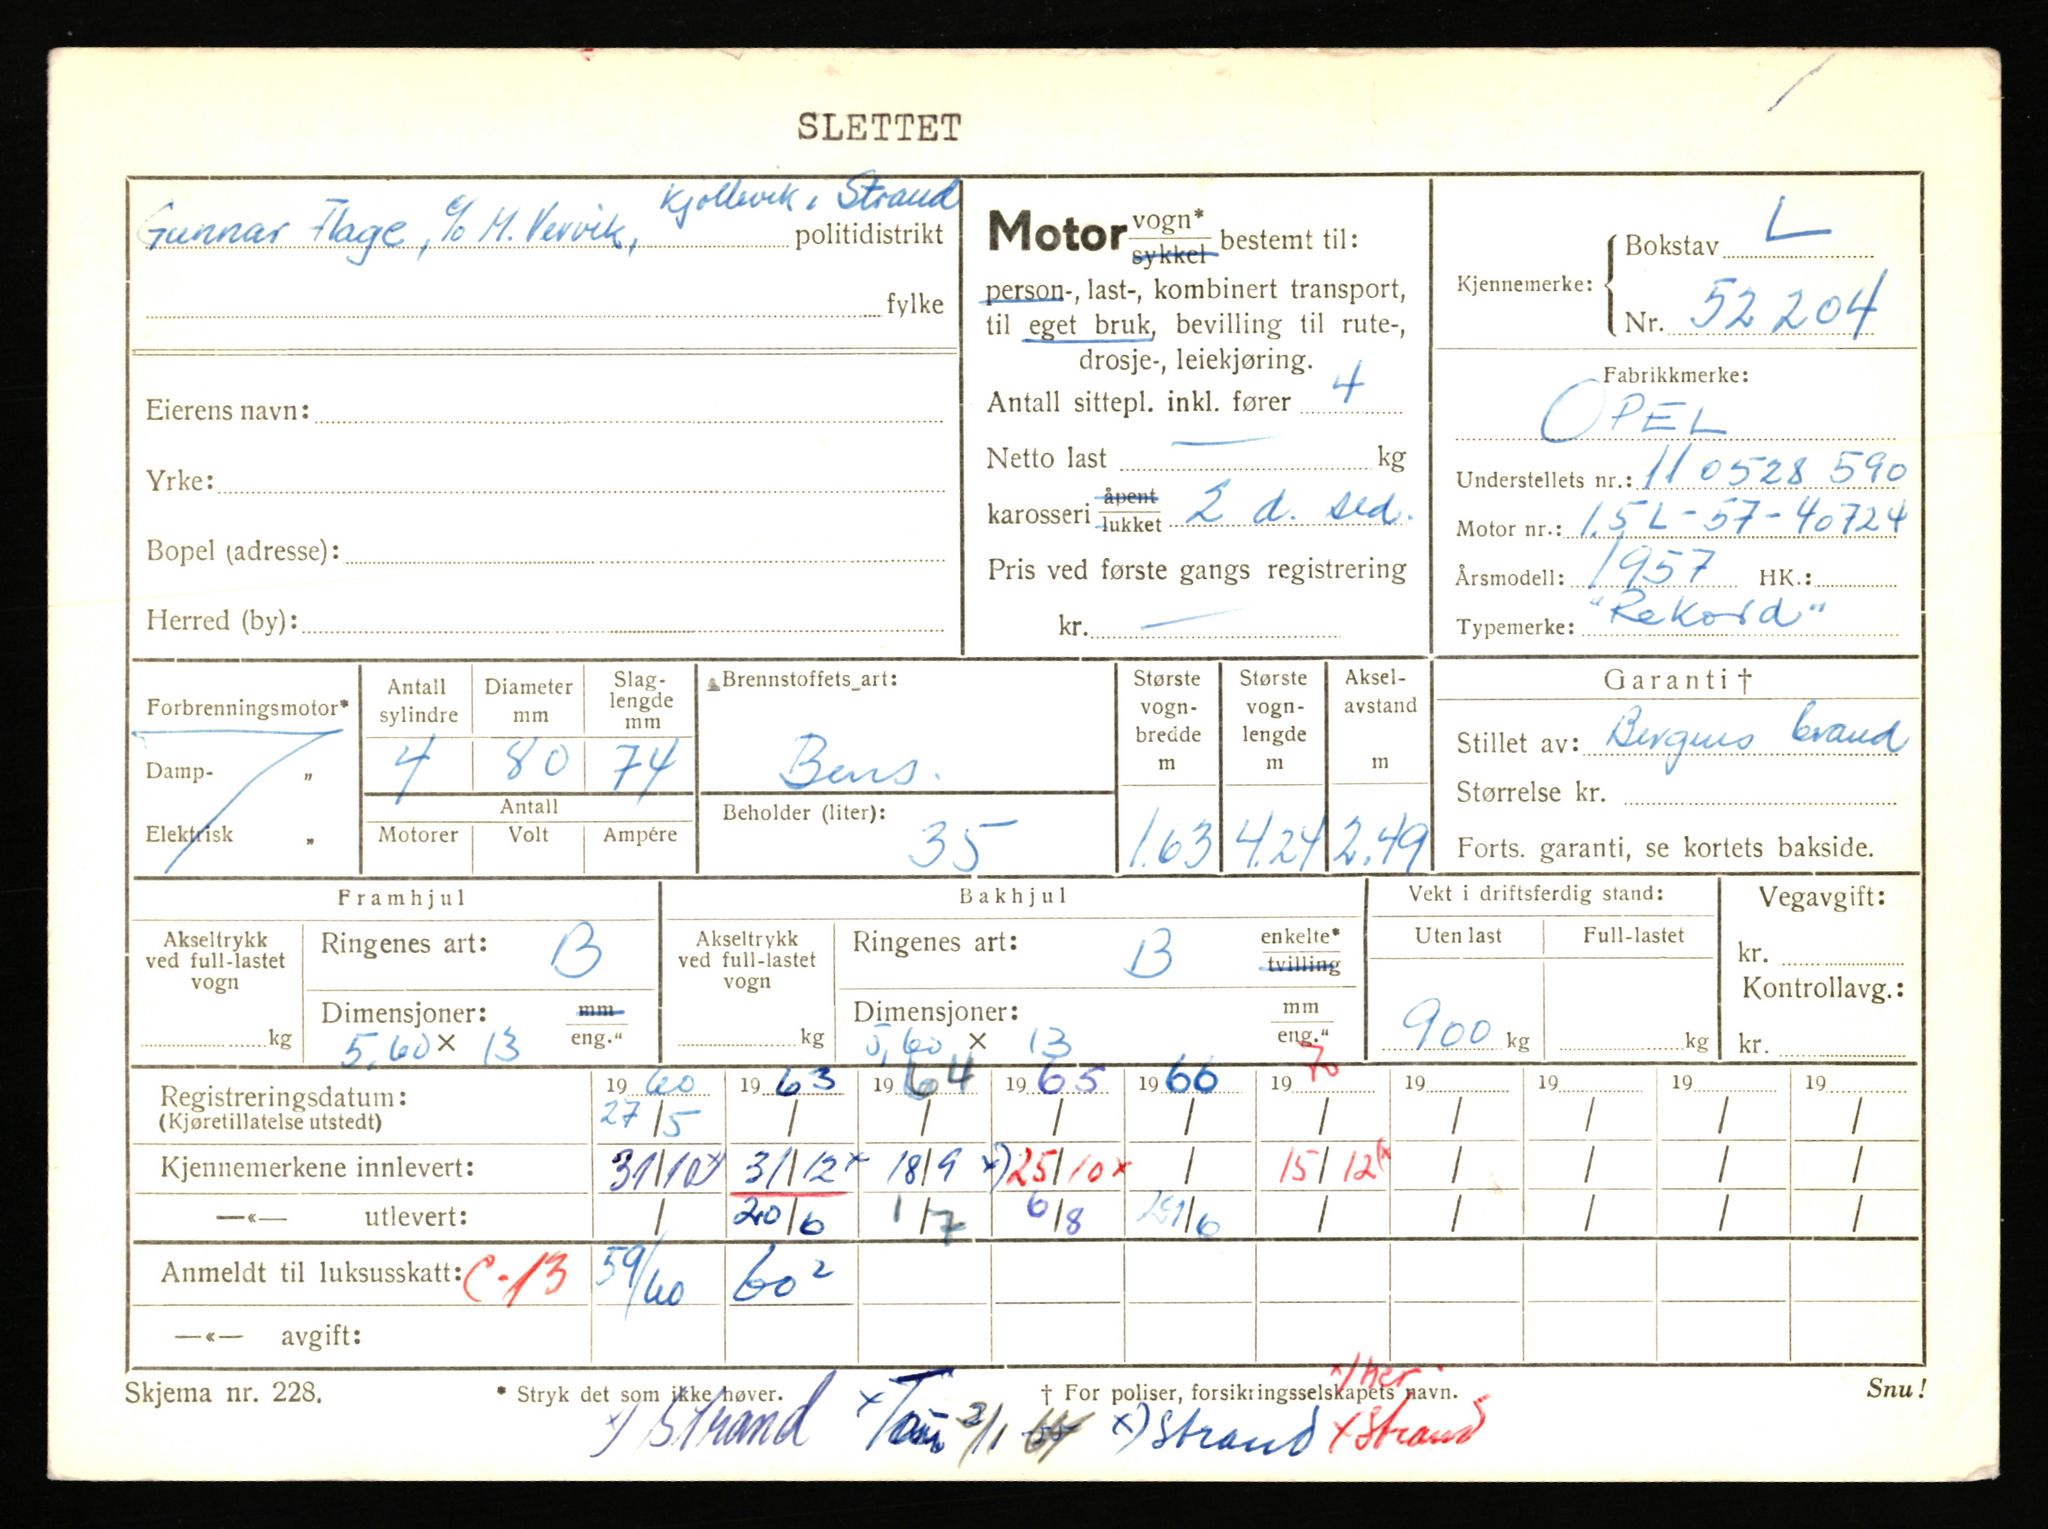 SLETTET
Kjøllevik i Strand
Gunnar Flage, c/o M. Vervik, politidistrikt
fylke
Eierens navn:
Yrke:
Bopel (adresse):
Herred (by):
Motor vogn* sykkel bestemt til:
person-, last-, kombinert transport,
til eget bruk, bevilling til rute-,
drosje-, leiekjøring.
Antall sittepl. inkl. fører 4
Netto last — kg
karosseri åpent lukket 2 d. sed.
Pris ved første gangs registrering
kr. —
Kjennemerke: Bokstav L
Nr. 52204
Fabrikkmerke:
OPEL
Understellets nr.: 110528590
Motor nr.: 1.5L-57-40724
Årsmodell: 1957 HK.:
Typemerke: "Rekord"
Forbrenningsmotor*
Damp- „
Elektrisk „
Antall sylindre Diameter mm Slaglengde mm
4 80 74
Antall
Motorer Volt Ampére
Brennstoffets art:
Bens.
Beholder (liter):
35
Største vognbredde m
1.63
Største vognlengde m
4.24
Akselavstand m
2.49
Garanti †
Stillet av: Bergens brand
Størrelse kr.
Forts. garanti, se kortets bakside.
Framhjul
Akseltrykk ved full-lastet vogn
kg
Ringenes art: B
Dimensjoner: mm eng."
5,60 × 13
Bakhjul
Akseltrykk ved full-lastet vogn
kg
Ringenes art: B enkelte* tvilling
Dimensjoner: mm eng."
5,60 × 13
Vekt i driftsferdig stand:
Uten last Full-lastet
900 kg kg
Vegavgift:
kr.
Kontrollavg.:
kr.
Registreringsdatum: 1960 1963 1964 1965 1966 1970 19 19 19 19
(Kjøretillatelse utstedt) 27/5 / / / / / / / / /
Kjennemerkene innlevert: 31/10 x 31/12 x 18/9 x) 25/10 x / 15/12 (x / / / /
—«— utlevert: / 20/6 1/7 6/8 29/6 / / / / /
Anmeldt til luksusskatt: C-13 59/60 60²
—«— avgift:
Skjema nr. 228. * Stryk det som ikke høver. † For poliser, forsikringsselskapets navn. Snu!
x) her
x) Strand x Tau 2/1 64 x) Strand x Strand